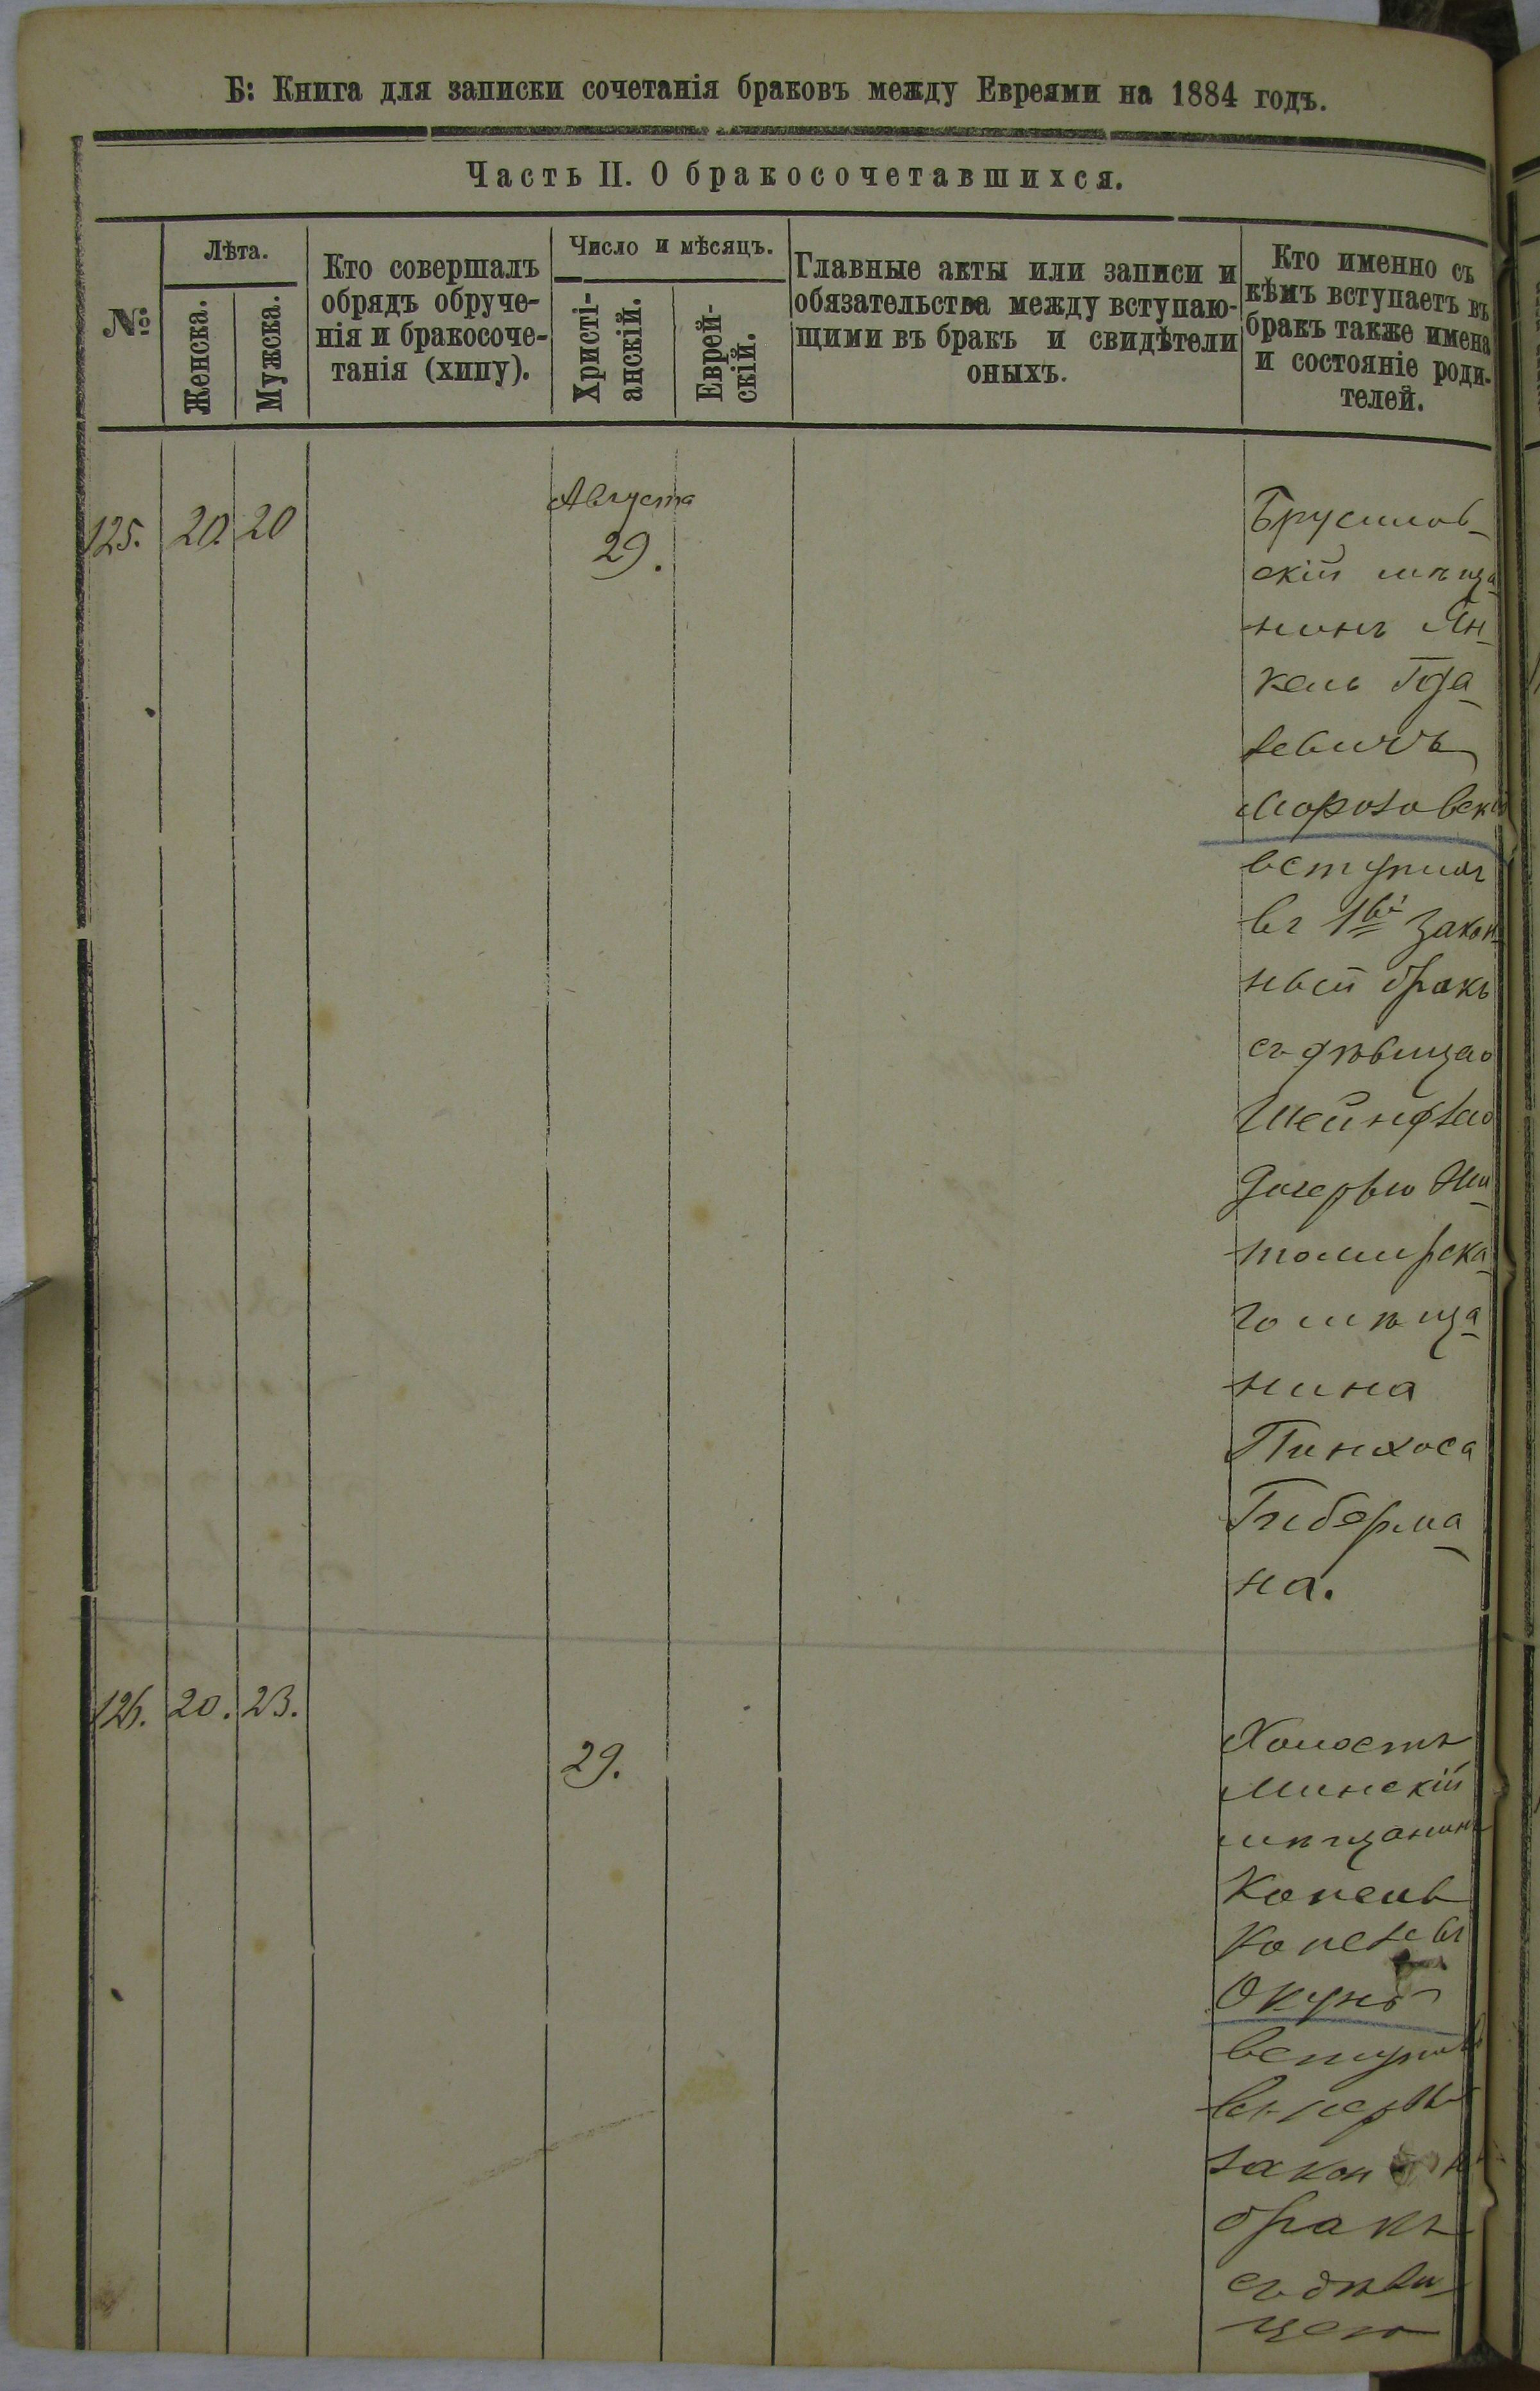 Б: Книга для записки сочетанія браковъ между Евреями на 1884 годъ.
Часть II. О бракосочетавшихся.
№
Лѣта.
Женска.
Мужска.
Кто совершалъ
обрядъ обруче-
нія и бракосоче-
танія (хипу).
Число и мѣсяцъ.
Христі-
анскій.
Еврей-
скій.
Главные акты или записи и
обязательства между вступаю-
щими въ бракъ и свидѣтели
оныхъ.
Кто именно съ
кѣмъ вступаетъ въ
бракъ также имена
и состояніе роди-
телей.
125. 20. 20
Августа
29.
Брусилов-
скій мѣща-
нинъ Ян-
кель
левичъ
Морозовскій
вступилъ
въ 1ый закон-
ный бракъ
съ дѣвицею
Шейндлею
дочерью Жи-
томирска-
го мѣща-
нина
Пинхоса
Гиберма-
на.
126. 20. 23.
29.
Холостъ
Минскій
мѣщанинъ
Копель
Окунь
вступилъ
въ первый
закон
бракъ
съ дѣви-
цею